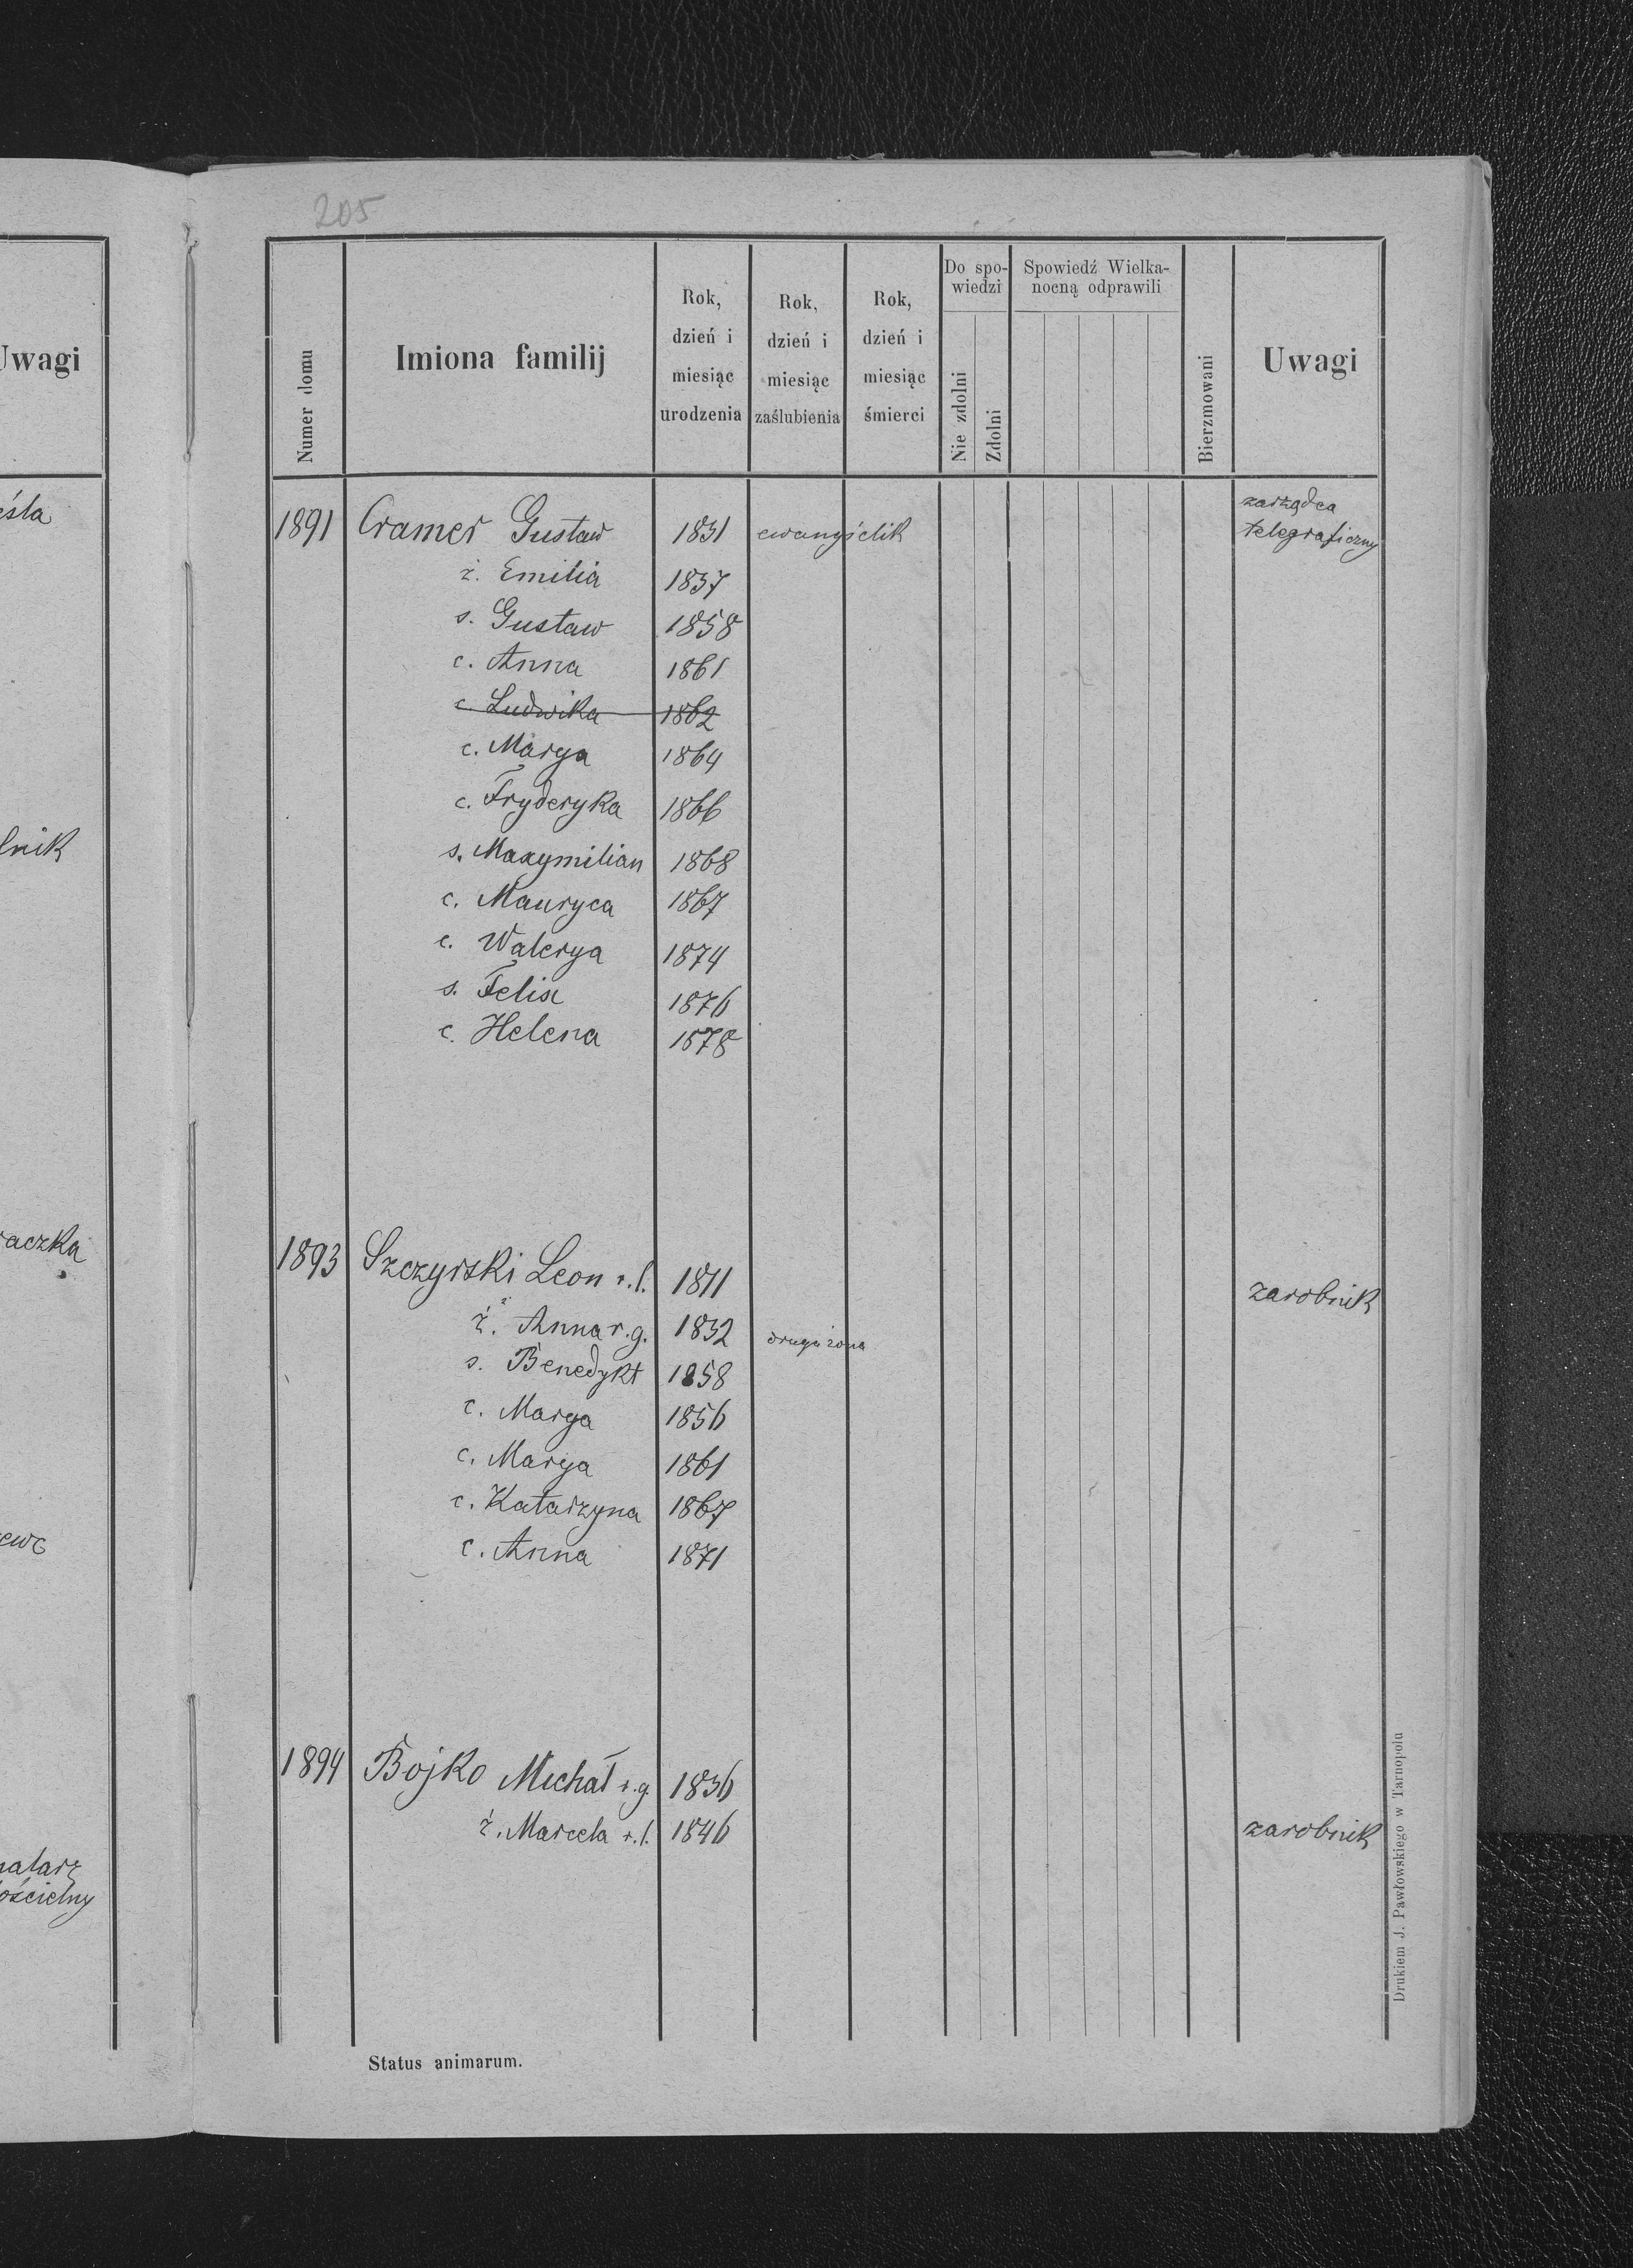 205
Uwagi
eśla
lnik
raczka
ewc
alarz
ościelny
Numer domu
Imiona familij
Rok,
dzień i
miesiąc
urodzenia
Rok,
dzień i
miesiąc
zaślubienia
Rok,
dzień i
miesiąc
śmierci
Do spo-
wiedzi
Nie zdolni
Zdolni
Spowiedź Wielka-
nocną odprawili
Bierzmowani
Uwagi
1891 Cramer Gustaw 1831 ewangielik zarządca
telegraficzny
ż. Emilia 1837
s. Gustaw 1858
c. Anna 1861
c Ludwika 1862
c. Marya 1864
c. Fryderyka 1866
s. Maxymilian 1868
c. Mauryca 1867
c. Walerya 1874
s. Felix 1876
c. Helena 1878
1893 Szczyrski Leon r.l. 1811 zarobnik
ż. Anna r.g. 1832 druga żona
s. Benedykt 1858
c. Marya 1856
c. Marya 1861
c. Katarzyna 1867
c. Anna 1871
1894 Bojko Michał r.g. 1836
ż. Marcela r.l. 1846 zarobnik
Status animarum.
Drukiem J. Pawłowskiego w Tarnopolu